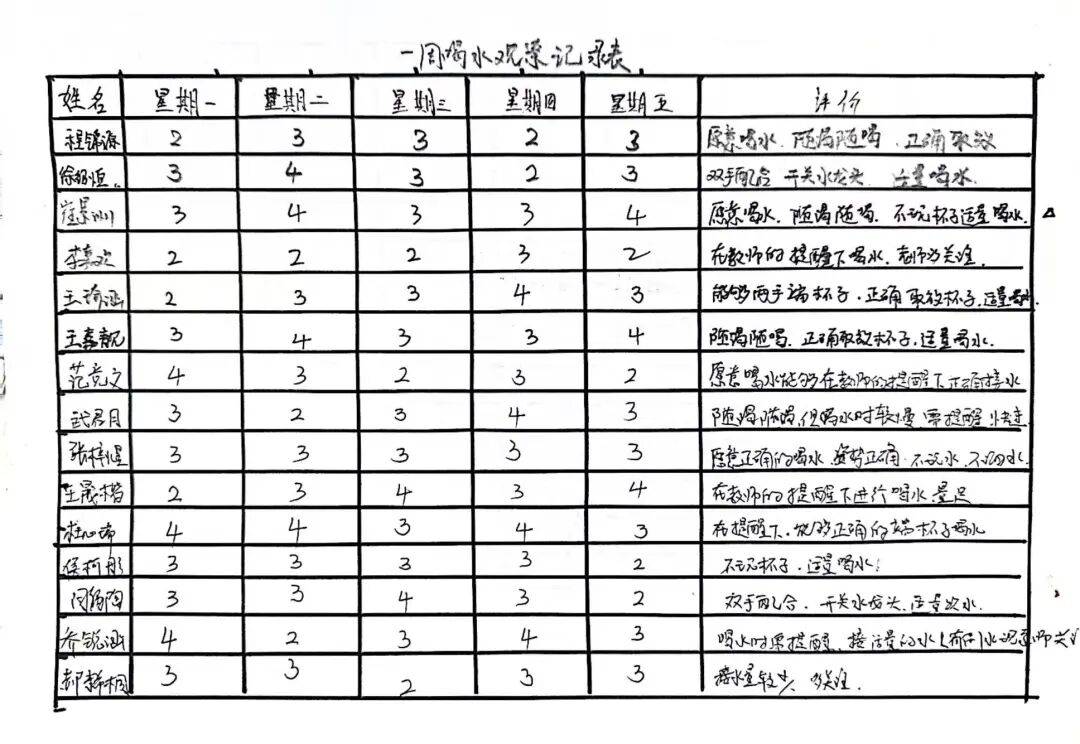 一周喝水观察记录表
姓名 星期一 星期二 星期三 星期四 星期五 评价
程锦源 2 3 3 2 3 愿意喝水、随渴随喝、正确取放
徐 恒 3 4 3 2 3 双手配合 开关水龙头 适量喝水.
崔 3 4 3 3 4 愿意喝水、随渴随喝. 不玩杯子适量喝水.
李 欢 2 2 2 3 2 在教师的提醒下喝水. 老师多关注.
王 涵 2 3 3 4 3 能够两手端杯子. 正确取放杯子.适量喝水.
王嘉靓 3 4 3 3 4 随渴随喝. 正确取放杯子.适量喝水.
范竞文 4 3 2 3 2 愿意喝水能够在教师的提醒下正确接水
武君月 3 2 3 4 3 随渴随喝,但喝水时较慢 需提醒
张梓煜 3 3 3 3 3 愿意正确的喝水 姿势正确. 不玩水.
王晟楷 2 3 4 3 4 在教师的提醒下进行喝水 量足
杜心 4 4 3 4 3 在提醒下. 能够正确的端杯子喝水
侯柯彤 3 3 3 3 2 不玩杯子. 适量喝水;
闫 陶 3 3 4 3 2 双手配合. 开关水龙头.适量饮水.
乔锐涵 4 2 3 4 3 喝水时需提醒. 接适量的水
郝 桐 3 3 2 3 3 接水量较少 多关注.